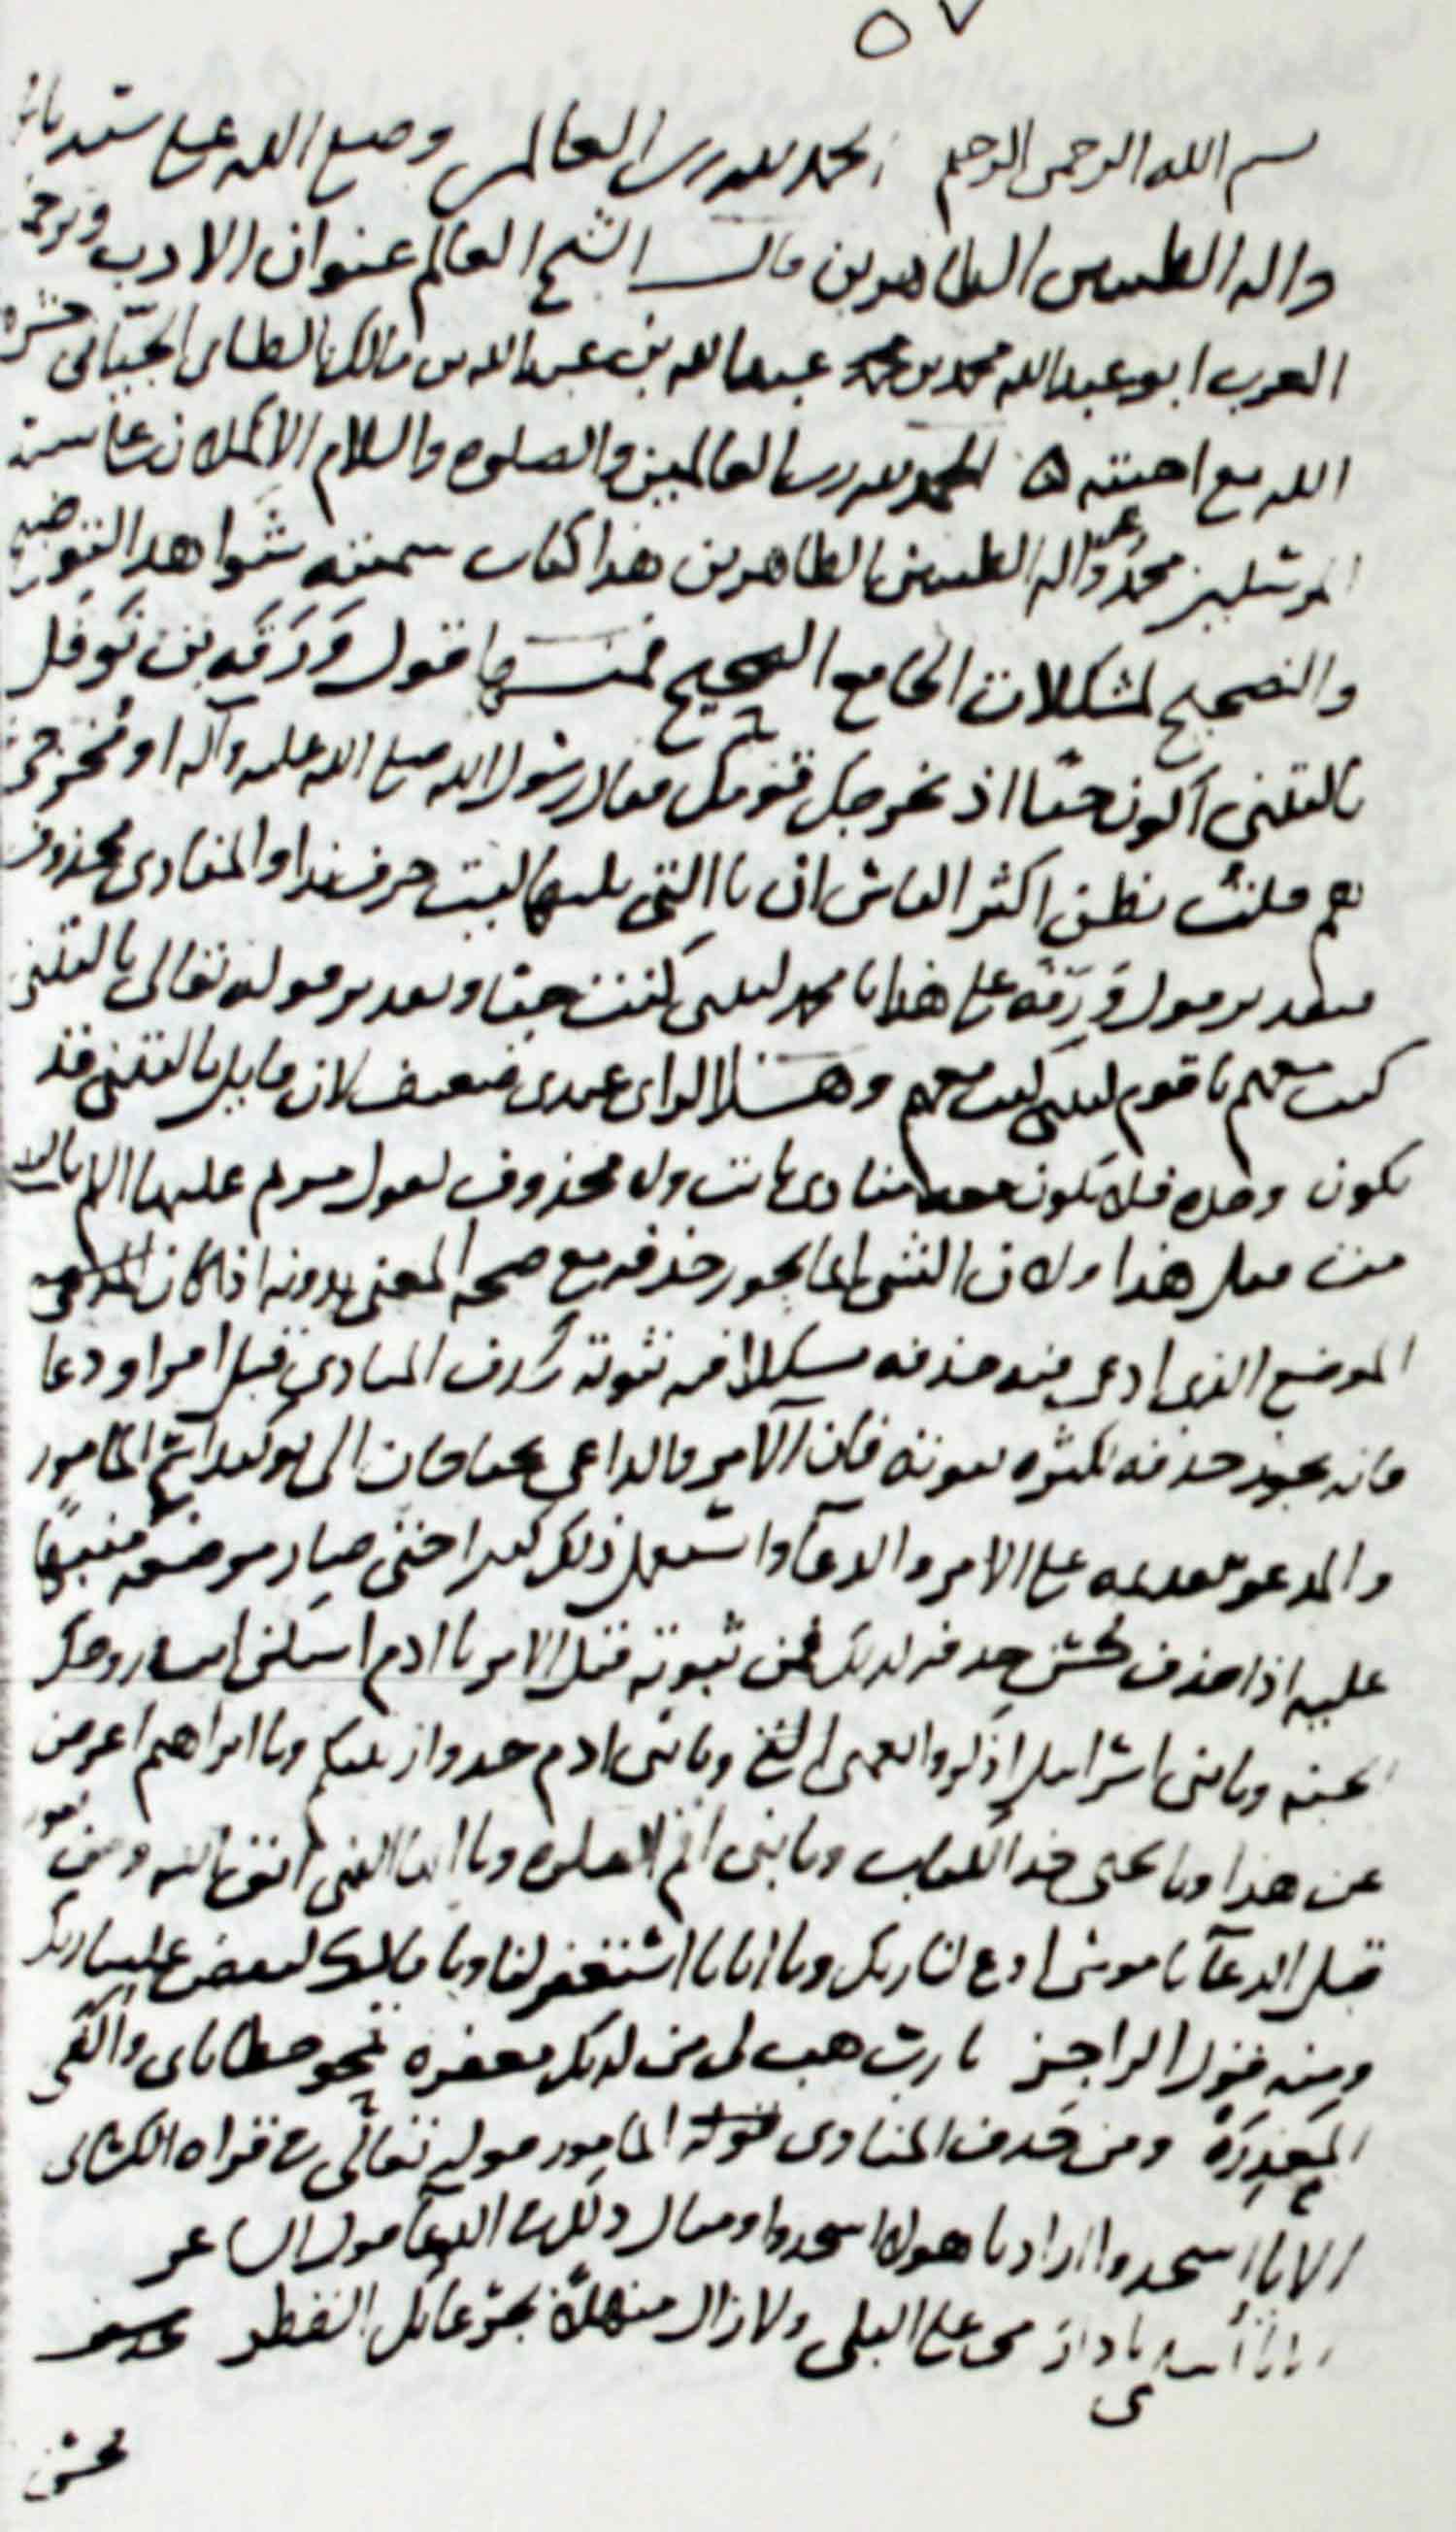 ٥٧
بسم الله الرحمن الرحيم الحمد لله رب العالمين وصلى الله على سيدنا
واله الطيبين الطاهرين قال الشيخ العالم عنوان الادب وترجمـ
العرب ابو عبد الله محمد بن محمد عبد الله بن عبد الله بن مالك الطاى الجيانى حشره
الله مع احبته الحمد لله رب العالمين والصلوه والسلام الاكملان على سيد
المرسلين محمد وعلى اله الطيبين الطاهرين هذا كتاب سميته شواهد التوضيح
والتصحيح لمشكلات الجامع الصحيح فمنها قول وَرَقَه بن نَوفَل
يا ليتنى اكون حيًا اذ يخرجك قومك فقال رسول الله صلى الله عليه وآله او مُخرجىّ هم
نعم قلت يظن اكثر الناس ان يا التى يليها ليت حرف ندا والمنادى محذوف
فتقدير قول وَرَقه على هذا يا محمد ليتنى كنت حيا وتقدير قوله تعالى يا ليتنى
كنت معهم يا قوم ليتنى كنت معهم وهذا الراى عندى ضعيف لان قايل يا ليتنى قد
يكون وحده فلا يكون معه منادى ثابت ولا محذوف كقول مريم عليها السلم يا ليتنى
مت قبل هذا ولان الشى انما يجوز حذفه مع صحه المعنى بدونه اذا كان
الموضع الذى ادعى فيه حذفه مستعملا فيه ثبوته كحذف المنادى قبل امر او دعا
فانه يجوز حذفه لكثره ثبوته فان الآمر والداعى يحتاجان الى توكيد اسم المامور
والمدعو بتقديمه على الامر والدعآ واستعمل ذلك كثيرا حتى صار موضعه منبهًا
عليه اذا حذف فحسن حذفه لذلك فمن ثبوته قبل الامر يا ادم اسكن انت وزوجك
الجنه ويا بنى اسرايل اذكروا نعمتى التى ويا بنى ادم خذوا زينتكم ويا ابراهيم اعرض
عن هذا ويا يحيى خذ الكتاب ويا بنى اقم الصلوه ويا ايها النبى اتق الله ومن ثبوته
قبل الدعآ يا موسى ادع لنا ربك ويا ابانا استغفر لنا ويا مالك ليقض علينا ربك
ومنه قول الراجز يا رب هب لى من لدنك مغفره تمحو خطاياى واكفى
المَعذِرَةَ ومن حذف المنادى المامور قوله تعالى فى قراه الكسائى
الا يا اسجدوا اراد يا هولا اسجدوا ومثال ذلك فى الدعآ قول الشاعر
الا يا اسلمى يا دار مى على البلى ولا زال منهلاً بجرعائك القطر
فحسن